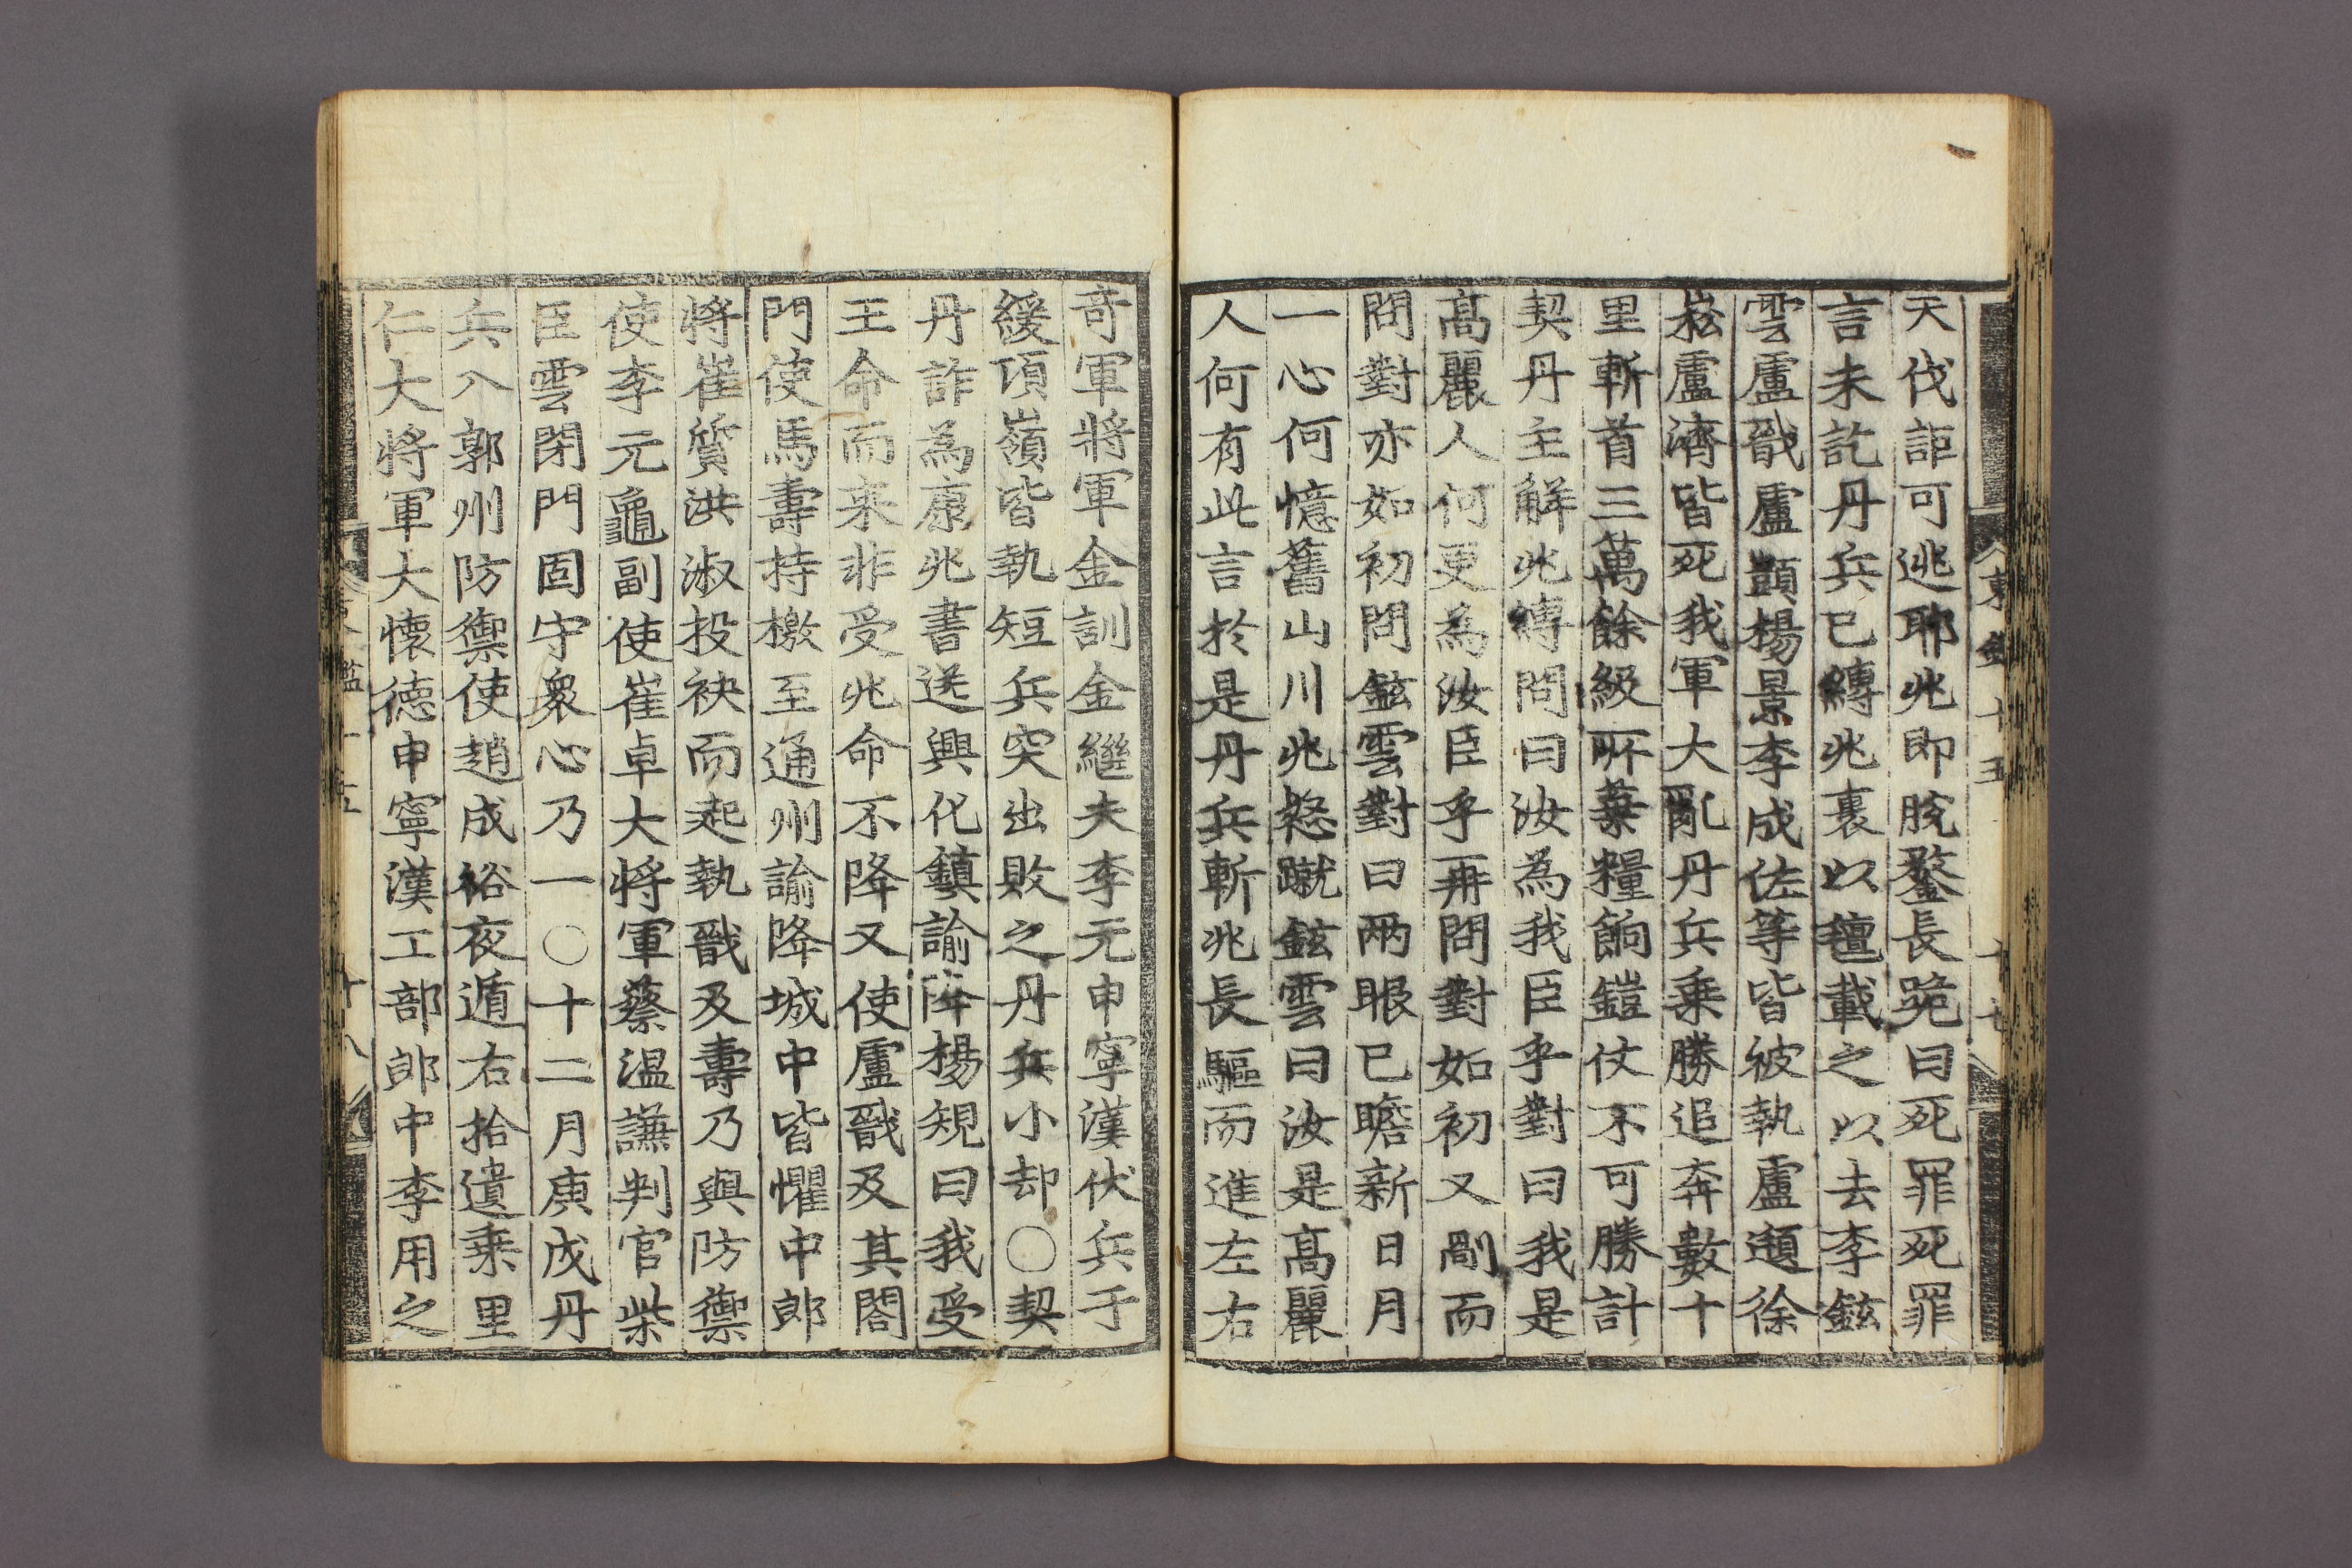 天伐詎可逃耶兆即脫鍪長跪曰死罪死罪
言未訖丹兵已縛兆裹以氊載之以去李鉉
雲盧戩盧顗楊景李成佐等皆被執盧頲徐
崧盧濟皆死我軍大亂丹兵乗勝追奔數十
里斬首三萬餘級所棄糧餉鎧仗不可勝計
契丹主解兆縛問曰汝為我臣乎對曰我是
髙麗人何更為汝臣乎再問對如初又剮而
問對亦如初問鉉雲對曰兩眼已瞻新日月
一心何憶舊山川兆怒蹴鉉雲曰汝是髙麗
人何有此言扵是丹兵斬兆長驅而進左右
東 十五 十七
奇軍將軍金訓金繼夫李元申寧漢伏兵于
緩項嶺皆執短兵突出敗之丹兵小却○契
丹詐為康兆書送興化鎮諭降楊規曰我受
王命而来非受兆命不降又使盧戩及其閤
門使馬壽持檄至通州諭降城中皆懼中郎
將崔質洪淑投袂而起執戩及壽乃與防禦
使李元龜副使崔卓大將軍蔡温謙判官柴
臣雲閉門固守衆心乃一○十二月庚戌丹
兵入郭州防禦使趙成裕夜遁右拾遺乗里
仁大將軍大懷德申寧漢工部郎中李用之
十八